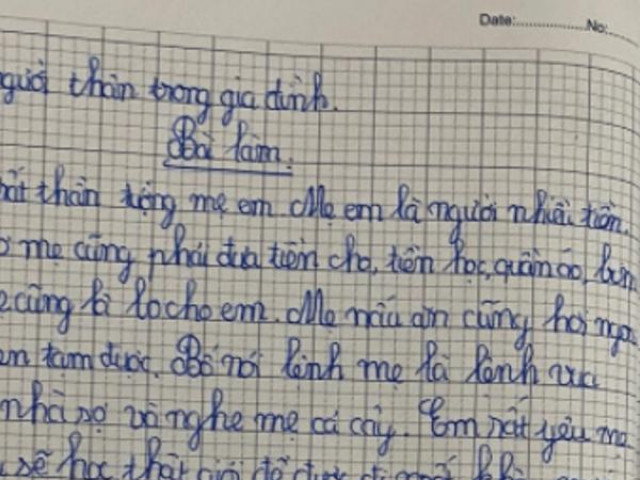 Date: No:
người thân trong gia đình.
Bài làm.
thân tặng mẹ em. Mẹ em là người nhiều tiền.
mẹ cũng phải đưa tiền cho, tiền học, quần áo,
cũng là lo cho em. Mẹ nấu ăn cũng hơi
tạm được. Bố nói lệnh mẹ là lệnh vua
nhà sợ và nghe mẹ cả cây. Em rất yêu mẹ
sẽ học thật giỏi để được đi